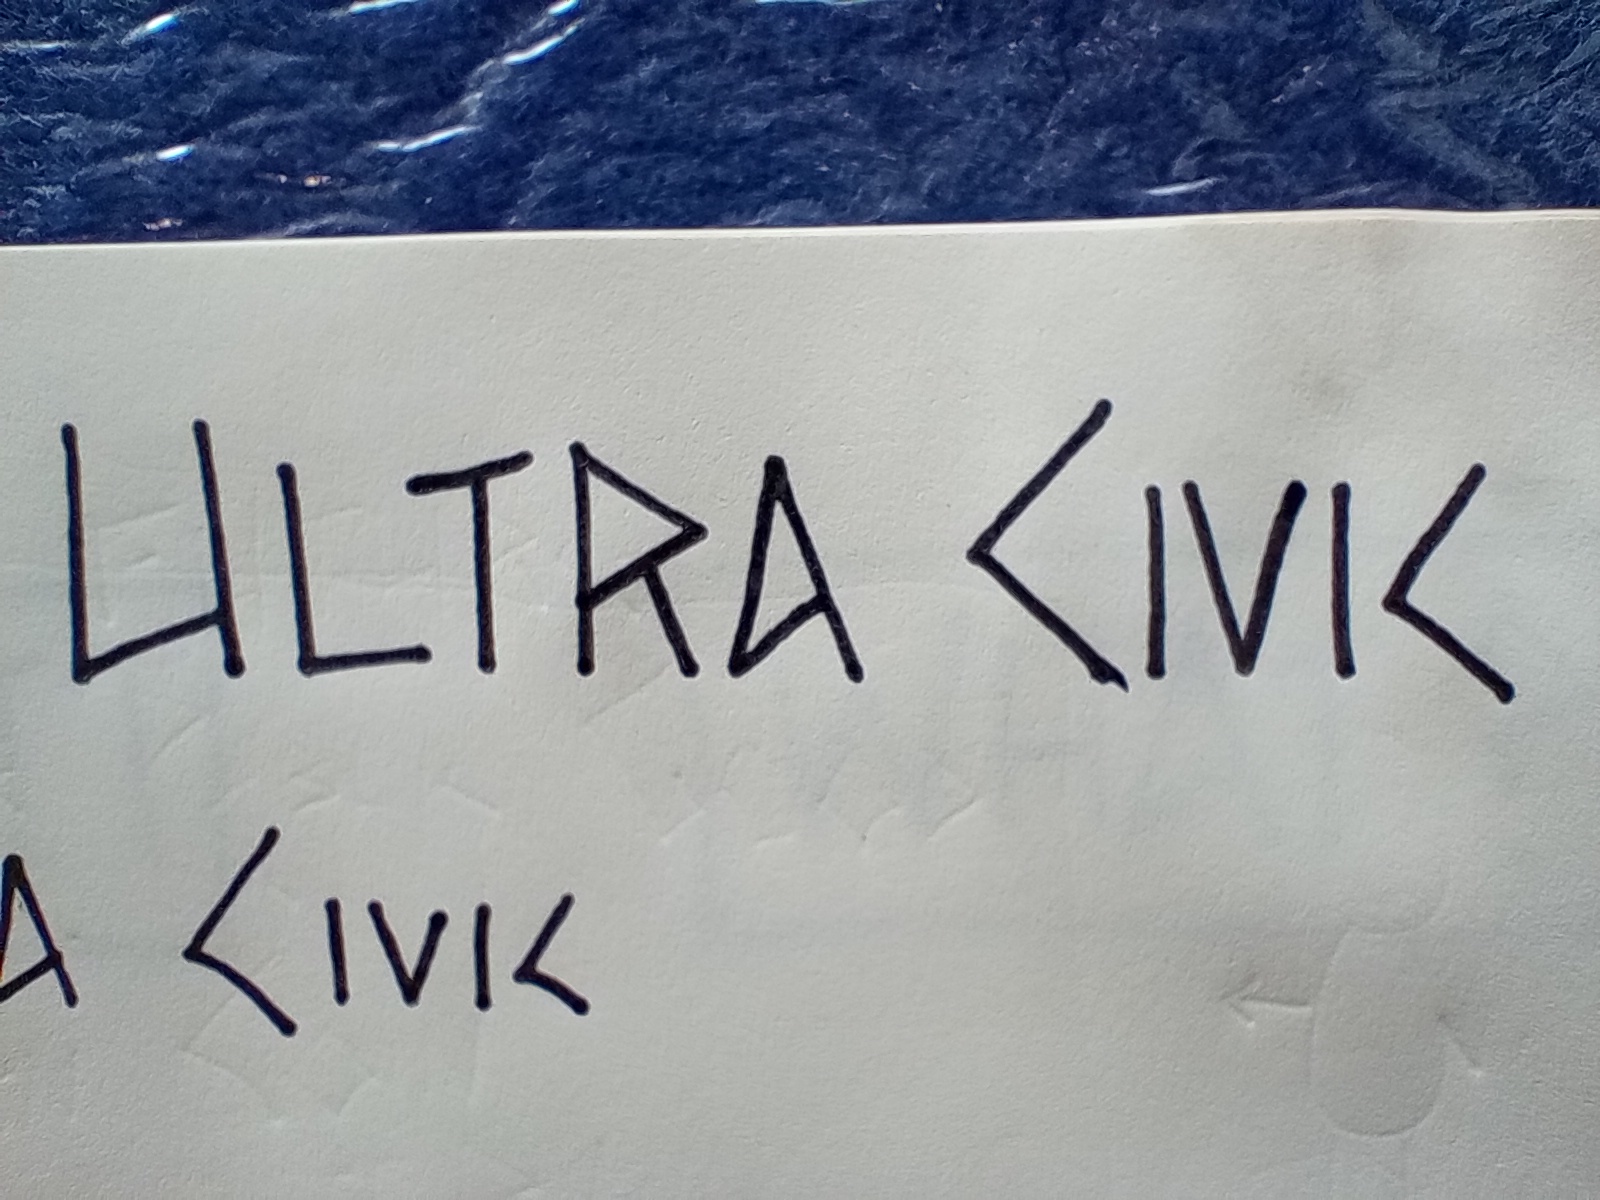 ULTRA CIVIC
A CIVIC